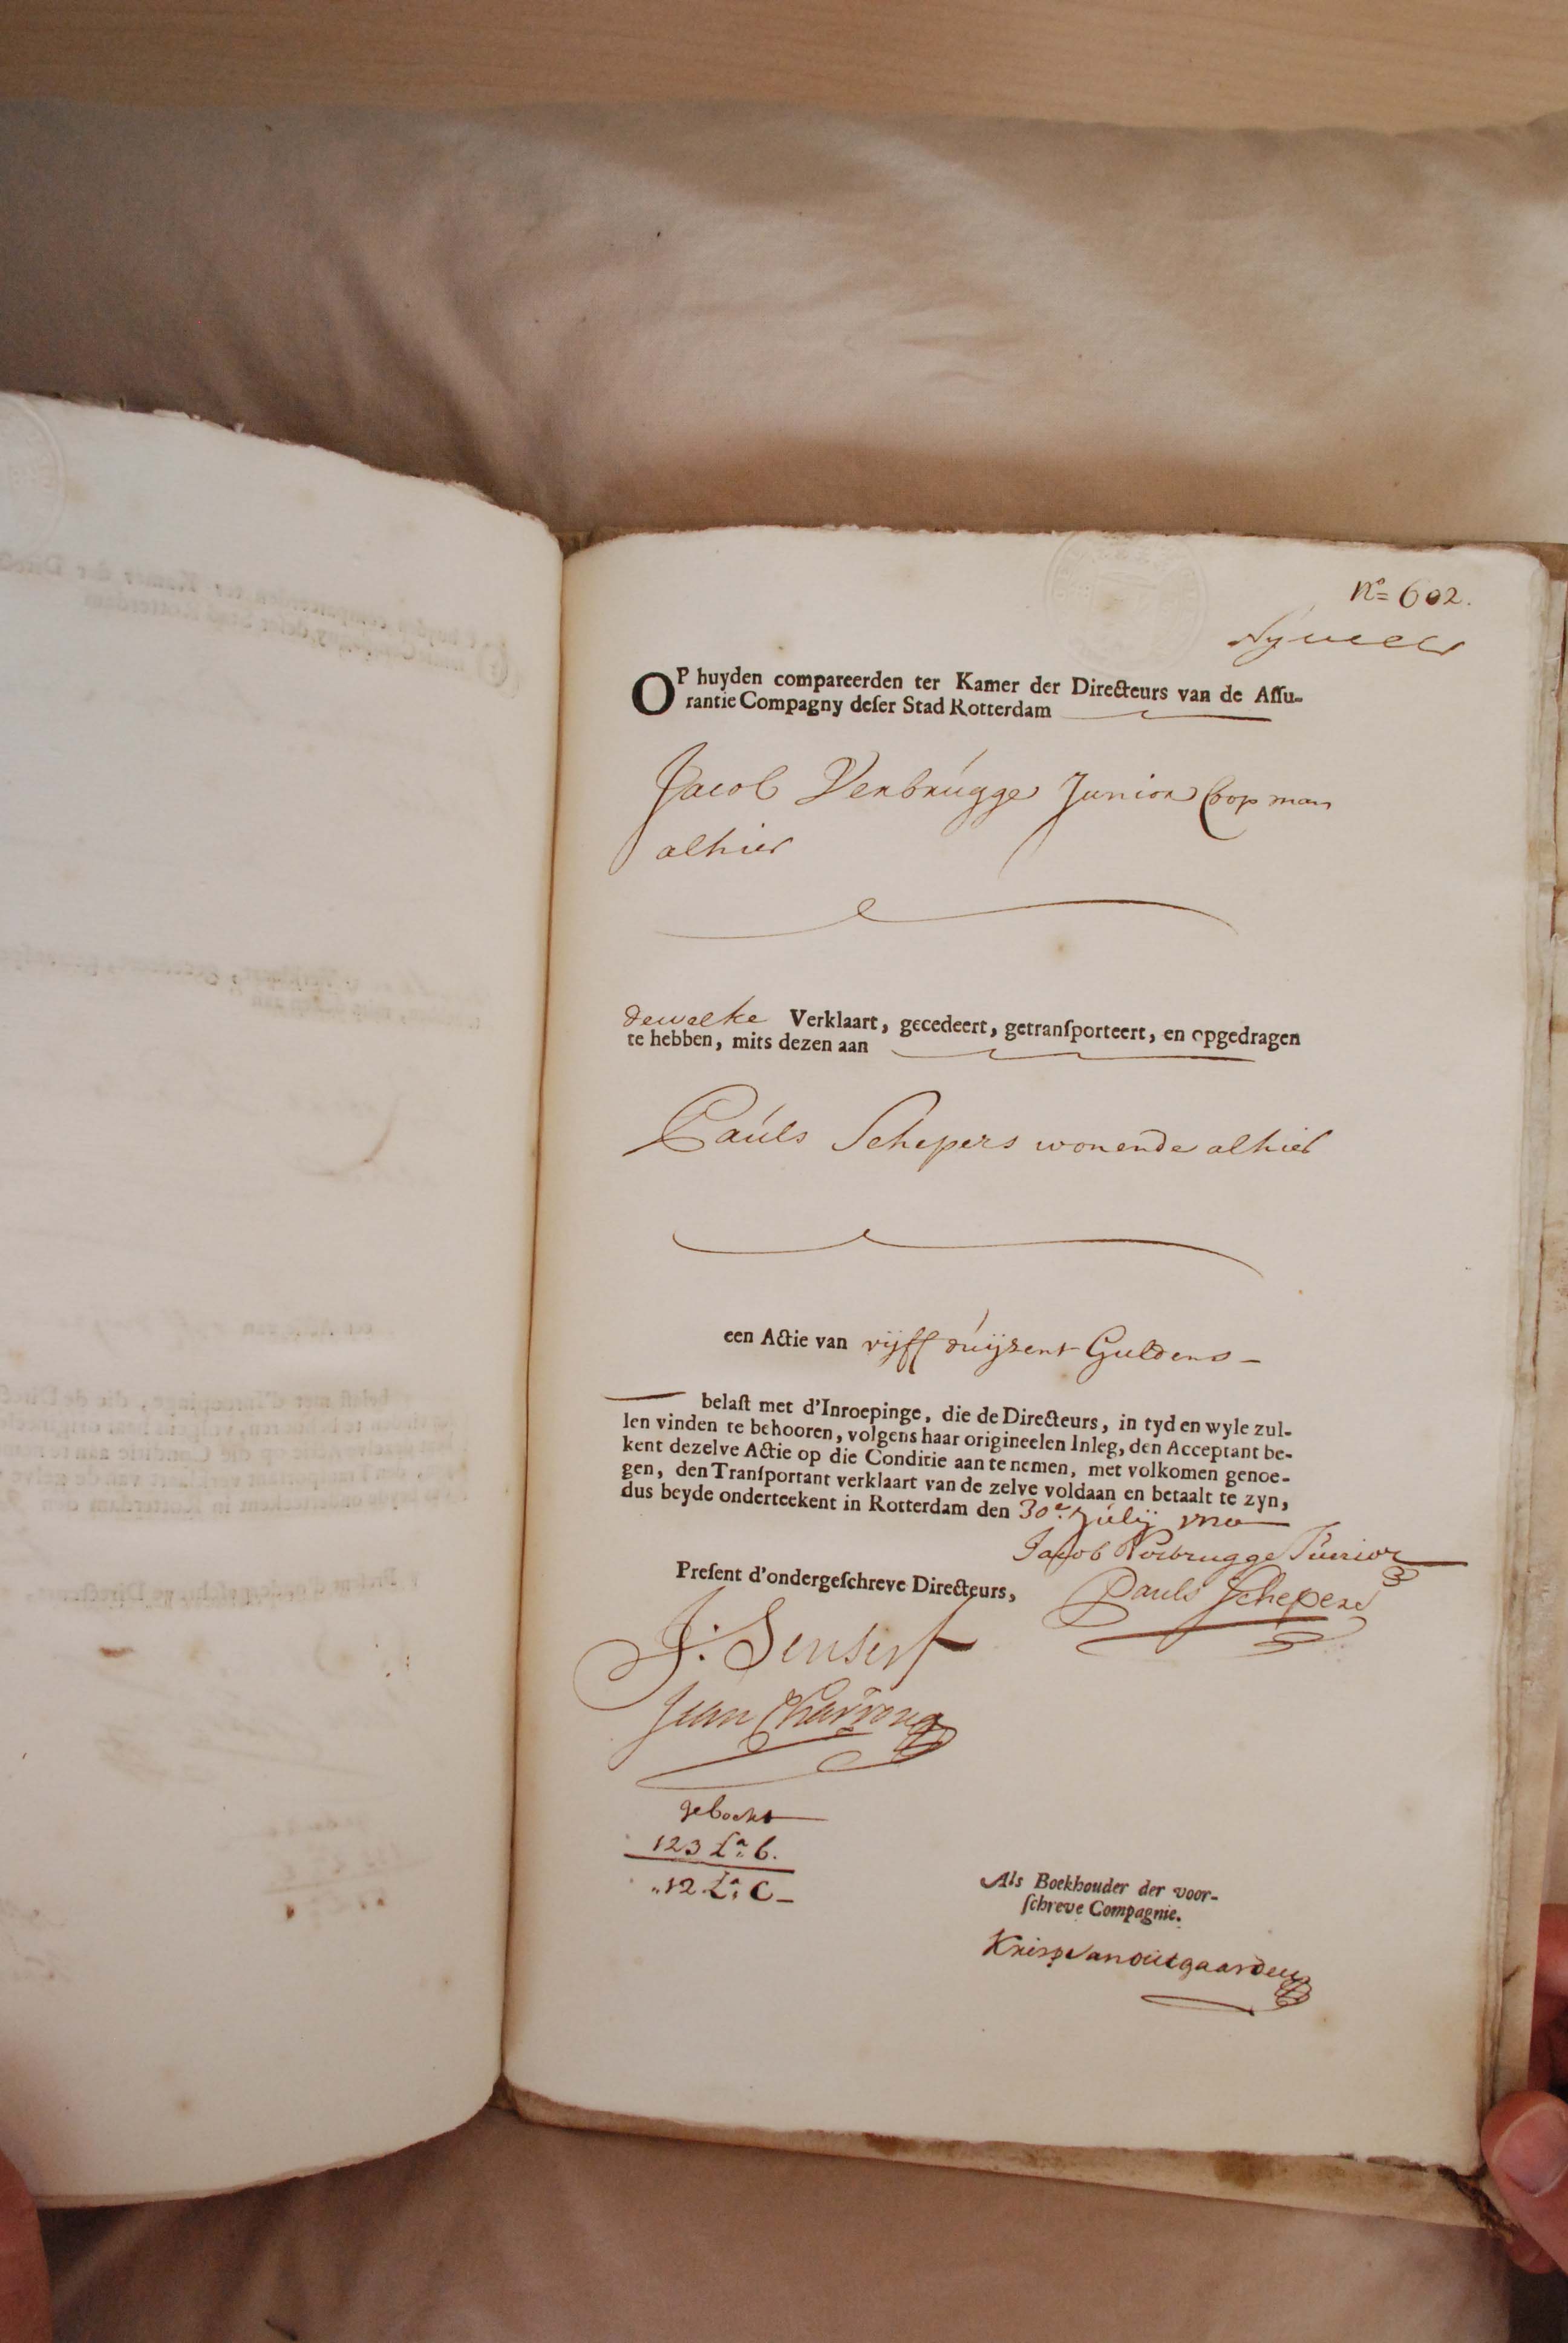 No 602.
OP huyden compareerden ter Kamer der Directeurs van de Assu-
rantie Compagny deser Stad Rotterdam
Jacob Verbrugge Junior Coopman
alhier
dewelke Verklaart, gecedeert, getransporteert, en opgedragen
te hebben, mits dezen aan
Pauls Schepers wonende alhier
een Actie van vijff duijzent Guldens
belast met d'Inroepinge, die de Directeurs, in tyd en wyle zul-
len vinden te behooren, volgens haar origineelen Inleg, den Acceptant be-
kent dezelve Actie op die Conditie aan te nemen, met volkomen genoe-
gen, den Transportant verklaart van de zelve voldaan en betaalt te zyn,
dus beyde onderteekent in Rotterdam den 30e Julij
Jacob Verbrugge Junior
Present d'ondergeschreve Directeurs,
Pauls Schepers
J: Senserf
Jean Charron
geboekt
123 La: b.
"12 La: C
Als Boekhouder der voor-
schreve Compagnie.